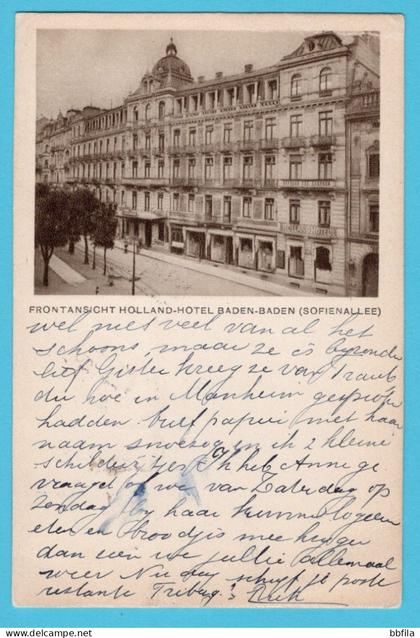 HOLLAND HOTEL
FRONTANSICHT HOLLAND-HOTEL BADEN-BADEN (SOFIENALLEE)
wel niet veel van al het
schoons, maar ze is byzonder
lief Gister kreeg ze van Traub
die we in Manheim gesproken
hadden brief papier met haar
naam en ik 2 kleine
schilderijtjes Ik heb Annie ge
vraagd of we van Zaterdag op
Zondag by haar kunnen logeeren
eten en broodjes mee krygen
dan zien we jullie allemaal
weer Nu dag schryf je poste
restante Friburg
https://www.bbfila.com
bbfila